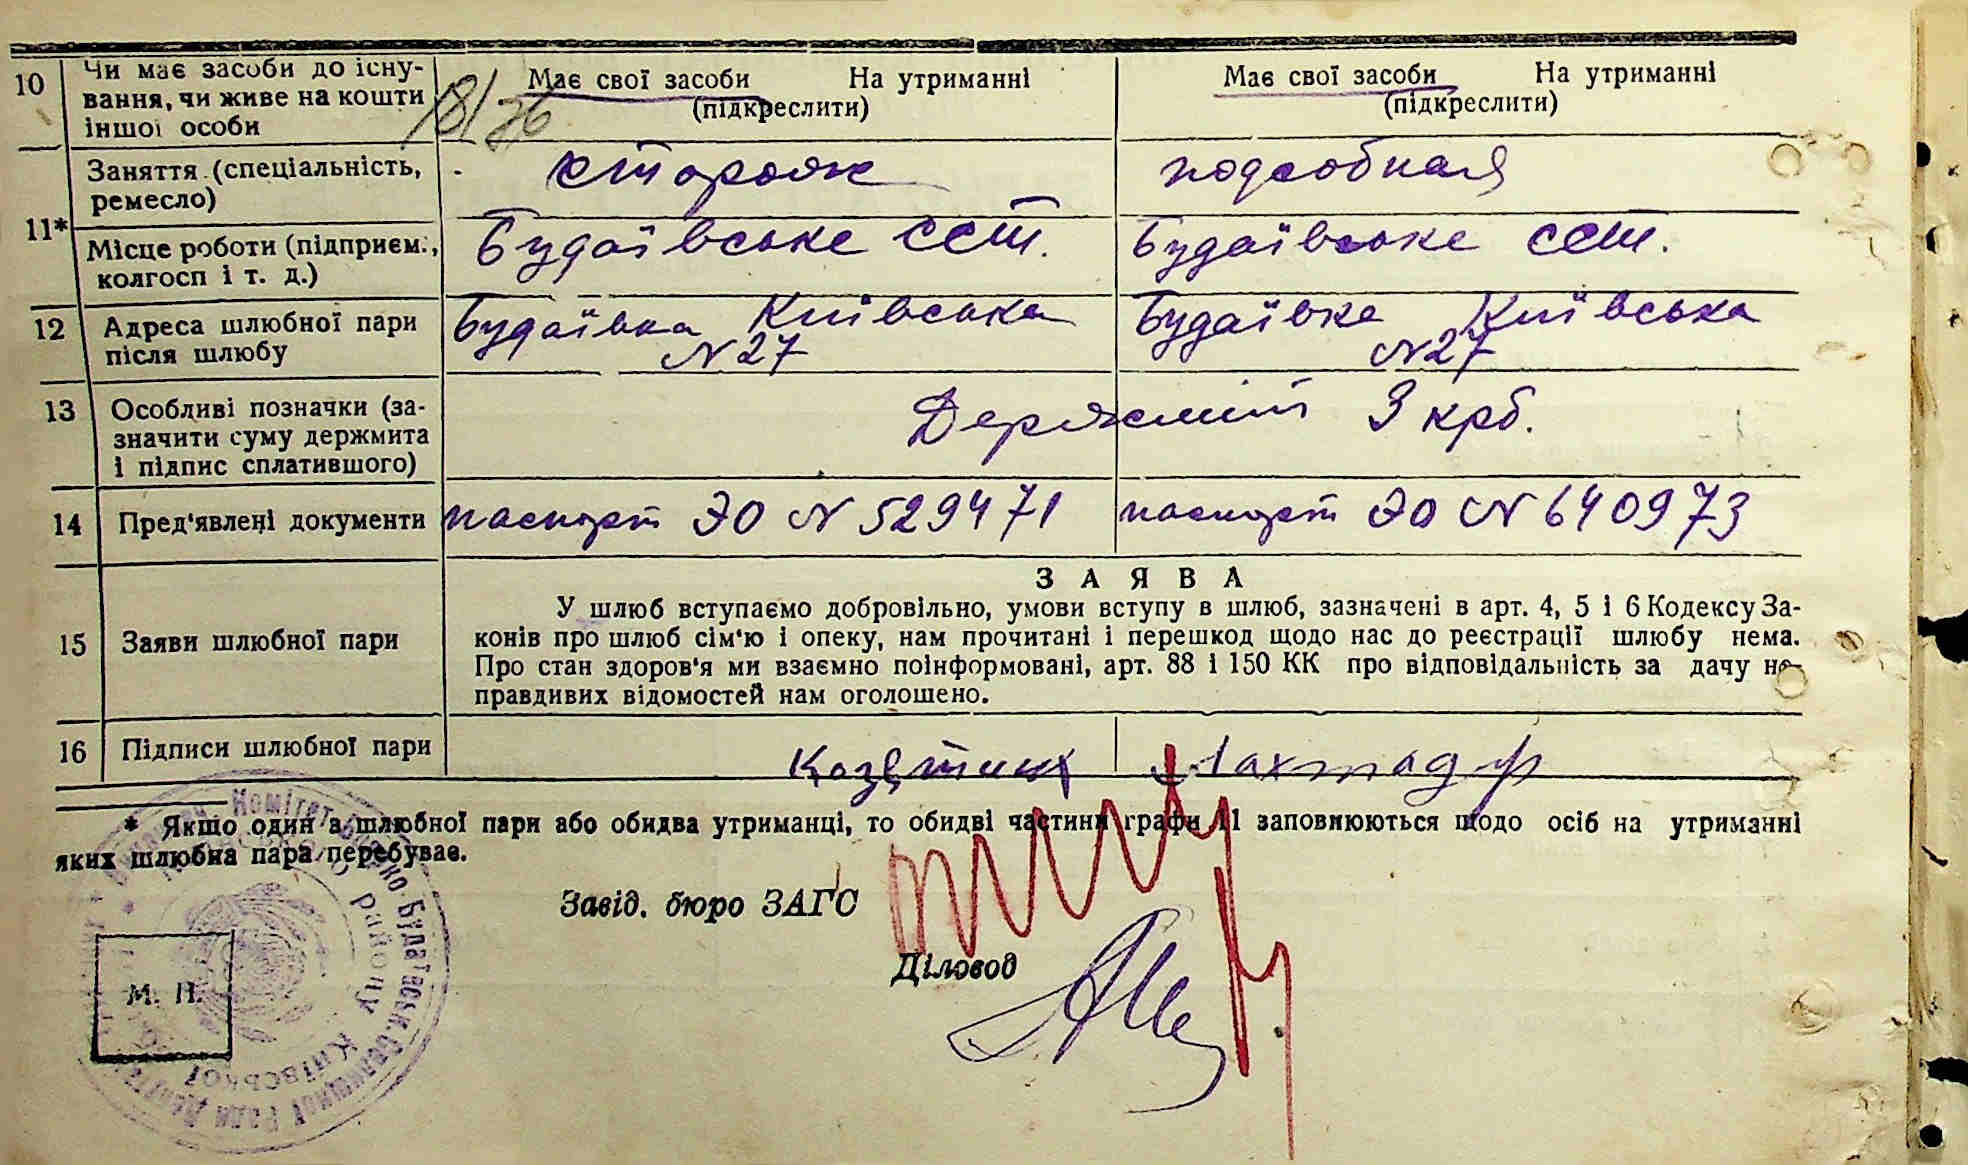 10 Чи має засоби до існу-
вання, чи живе на кошти
іншої особи
18/26
Має свої засоби На утриманні
(підкреслити)
Має свої засоби На утриманні
(підкреслити)
11* Заняття (спеціальність,
ремесло)
сторож
подсобная
Місце роботи (підприєм.,
колгосп і т. д.)
Будаївське ССТ.
Будаївське ССТ.
12 Адреса шлюбної пари
після шлюбу
Будаївка Київська
N 27
Будаївке Київська
N 27
13 Особливі позначки (за-
значити суму держмита
і підпис сплатившого)
Держмит 3 крб.
14 Пред'явлені документи
паспорт ЭО N 529471
паспорт ЭО N 640973
15 Заяви шлюбної пари
ЗАЯВА
У шлюб вступаємо добровільно, умови вступу в шлюб, зазначені в арт. 4, 5 і 6 Кодексу За-
конів про шлюб сім'ю і опеку, нам прочитані і перешкод щодо нас до реєстрації шлюбу нема.
Про стан здоров'я ми взаємно поінформовані, арт. 88 і 150 КК про відповідальність за дачу не-
правдивих відомостей нам оголошено.
16 Підписи шлюбної пари
* Якщо один з шлюбної пари або обидва утриманці, то обидві частини графи 11 заповнюються щодо осіб на утриманні
яких шлюбна пара перебуває.
Завід. бюро ЗАГС
Діловод
М. П.
Комітет
району Київської